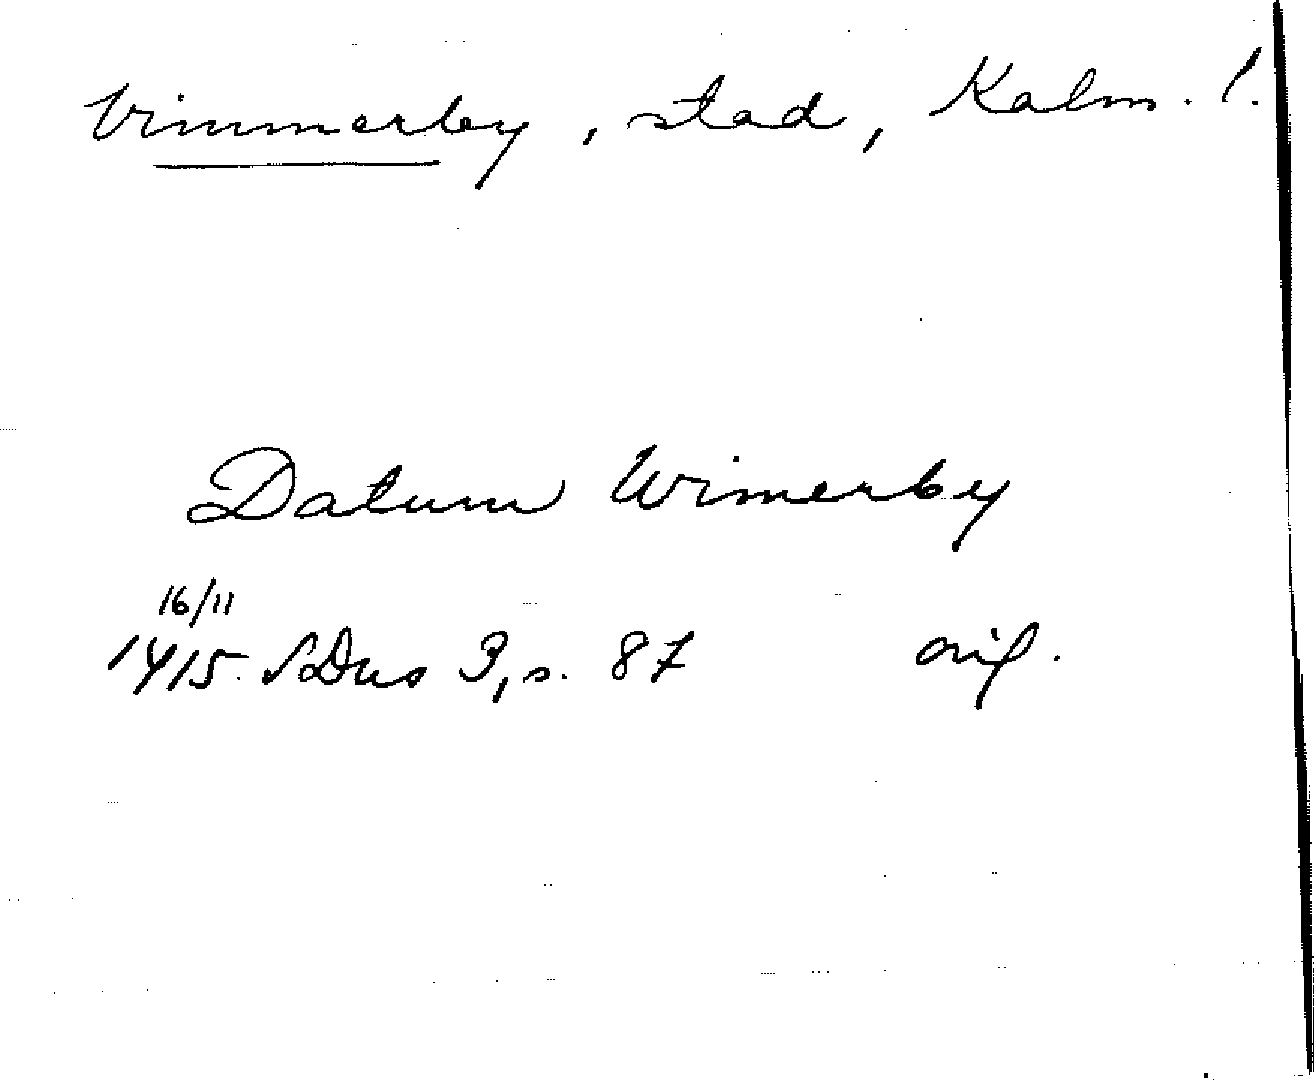 Vimmerby, stad, Kalm. l.
Datum Wimerby
16/11
1415 SDns 3, s. 87 orig.